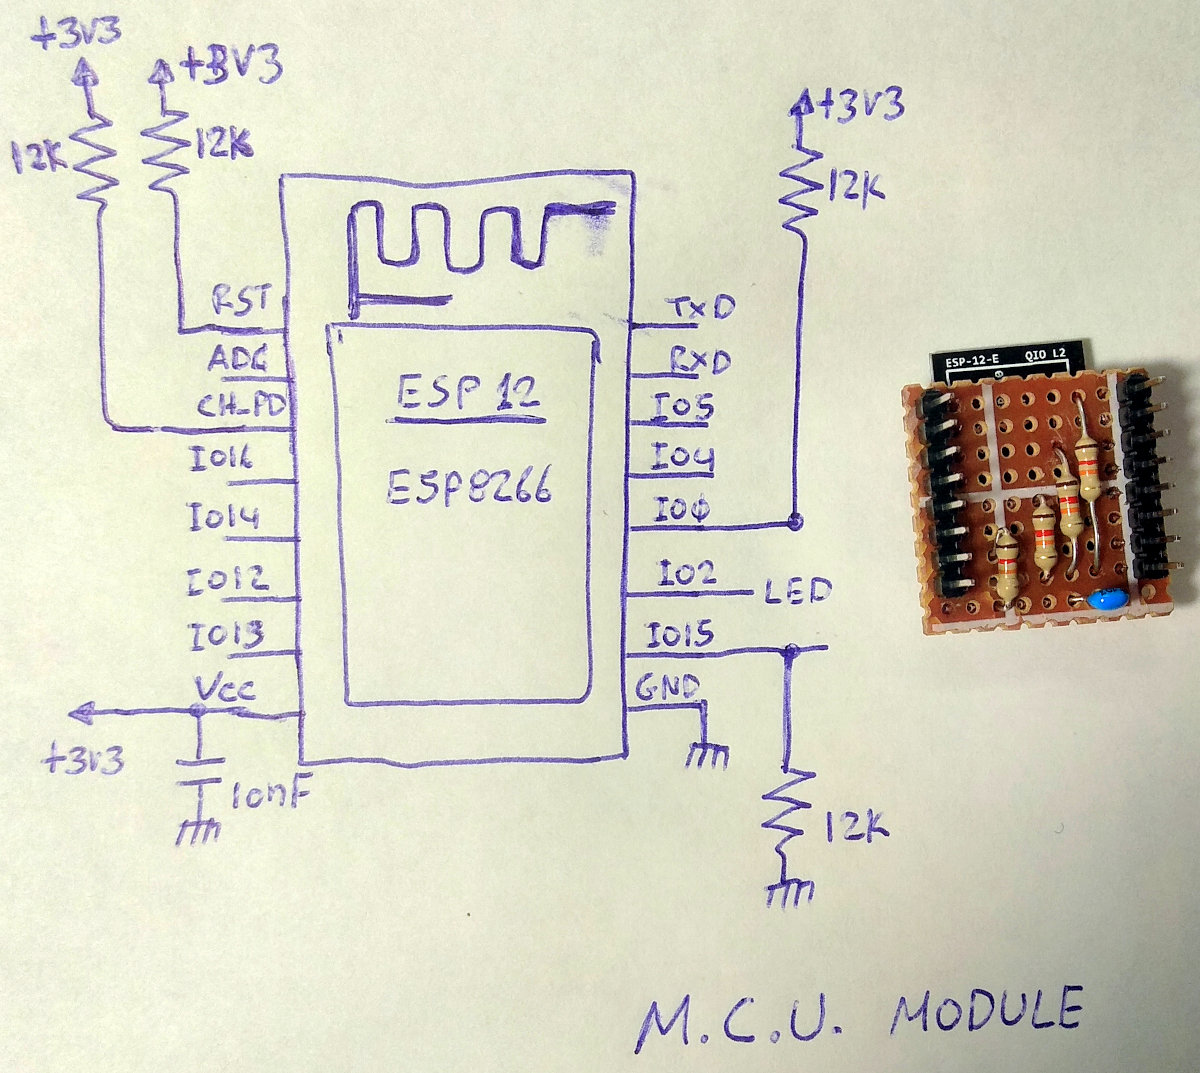 +3V3
+3V3
12K
12K
+3V3
12K
RST
ADC
CH_PD
IO16
IO14
IO12
IO13
Vcc
+3V3
10nF
ESP 12
ESP8266
TxD
RxD
IO5
IO4
IO0
IO2
LED
IO15
GND
12K
ESP-12-E QIO L2
M.C.U. MODULE